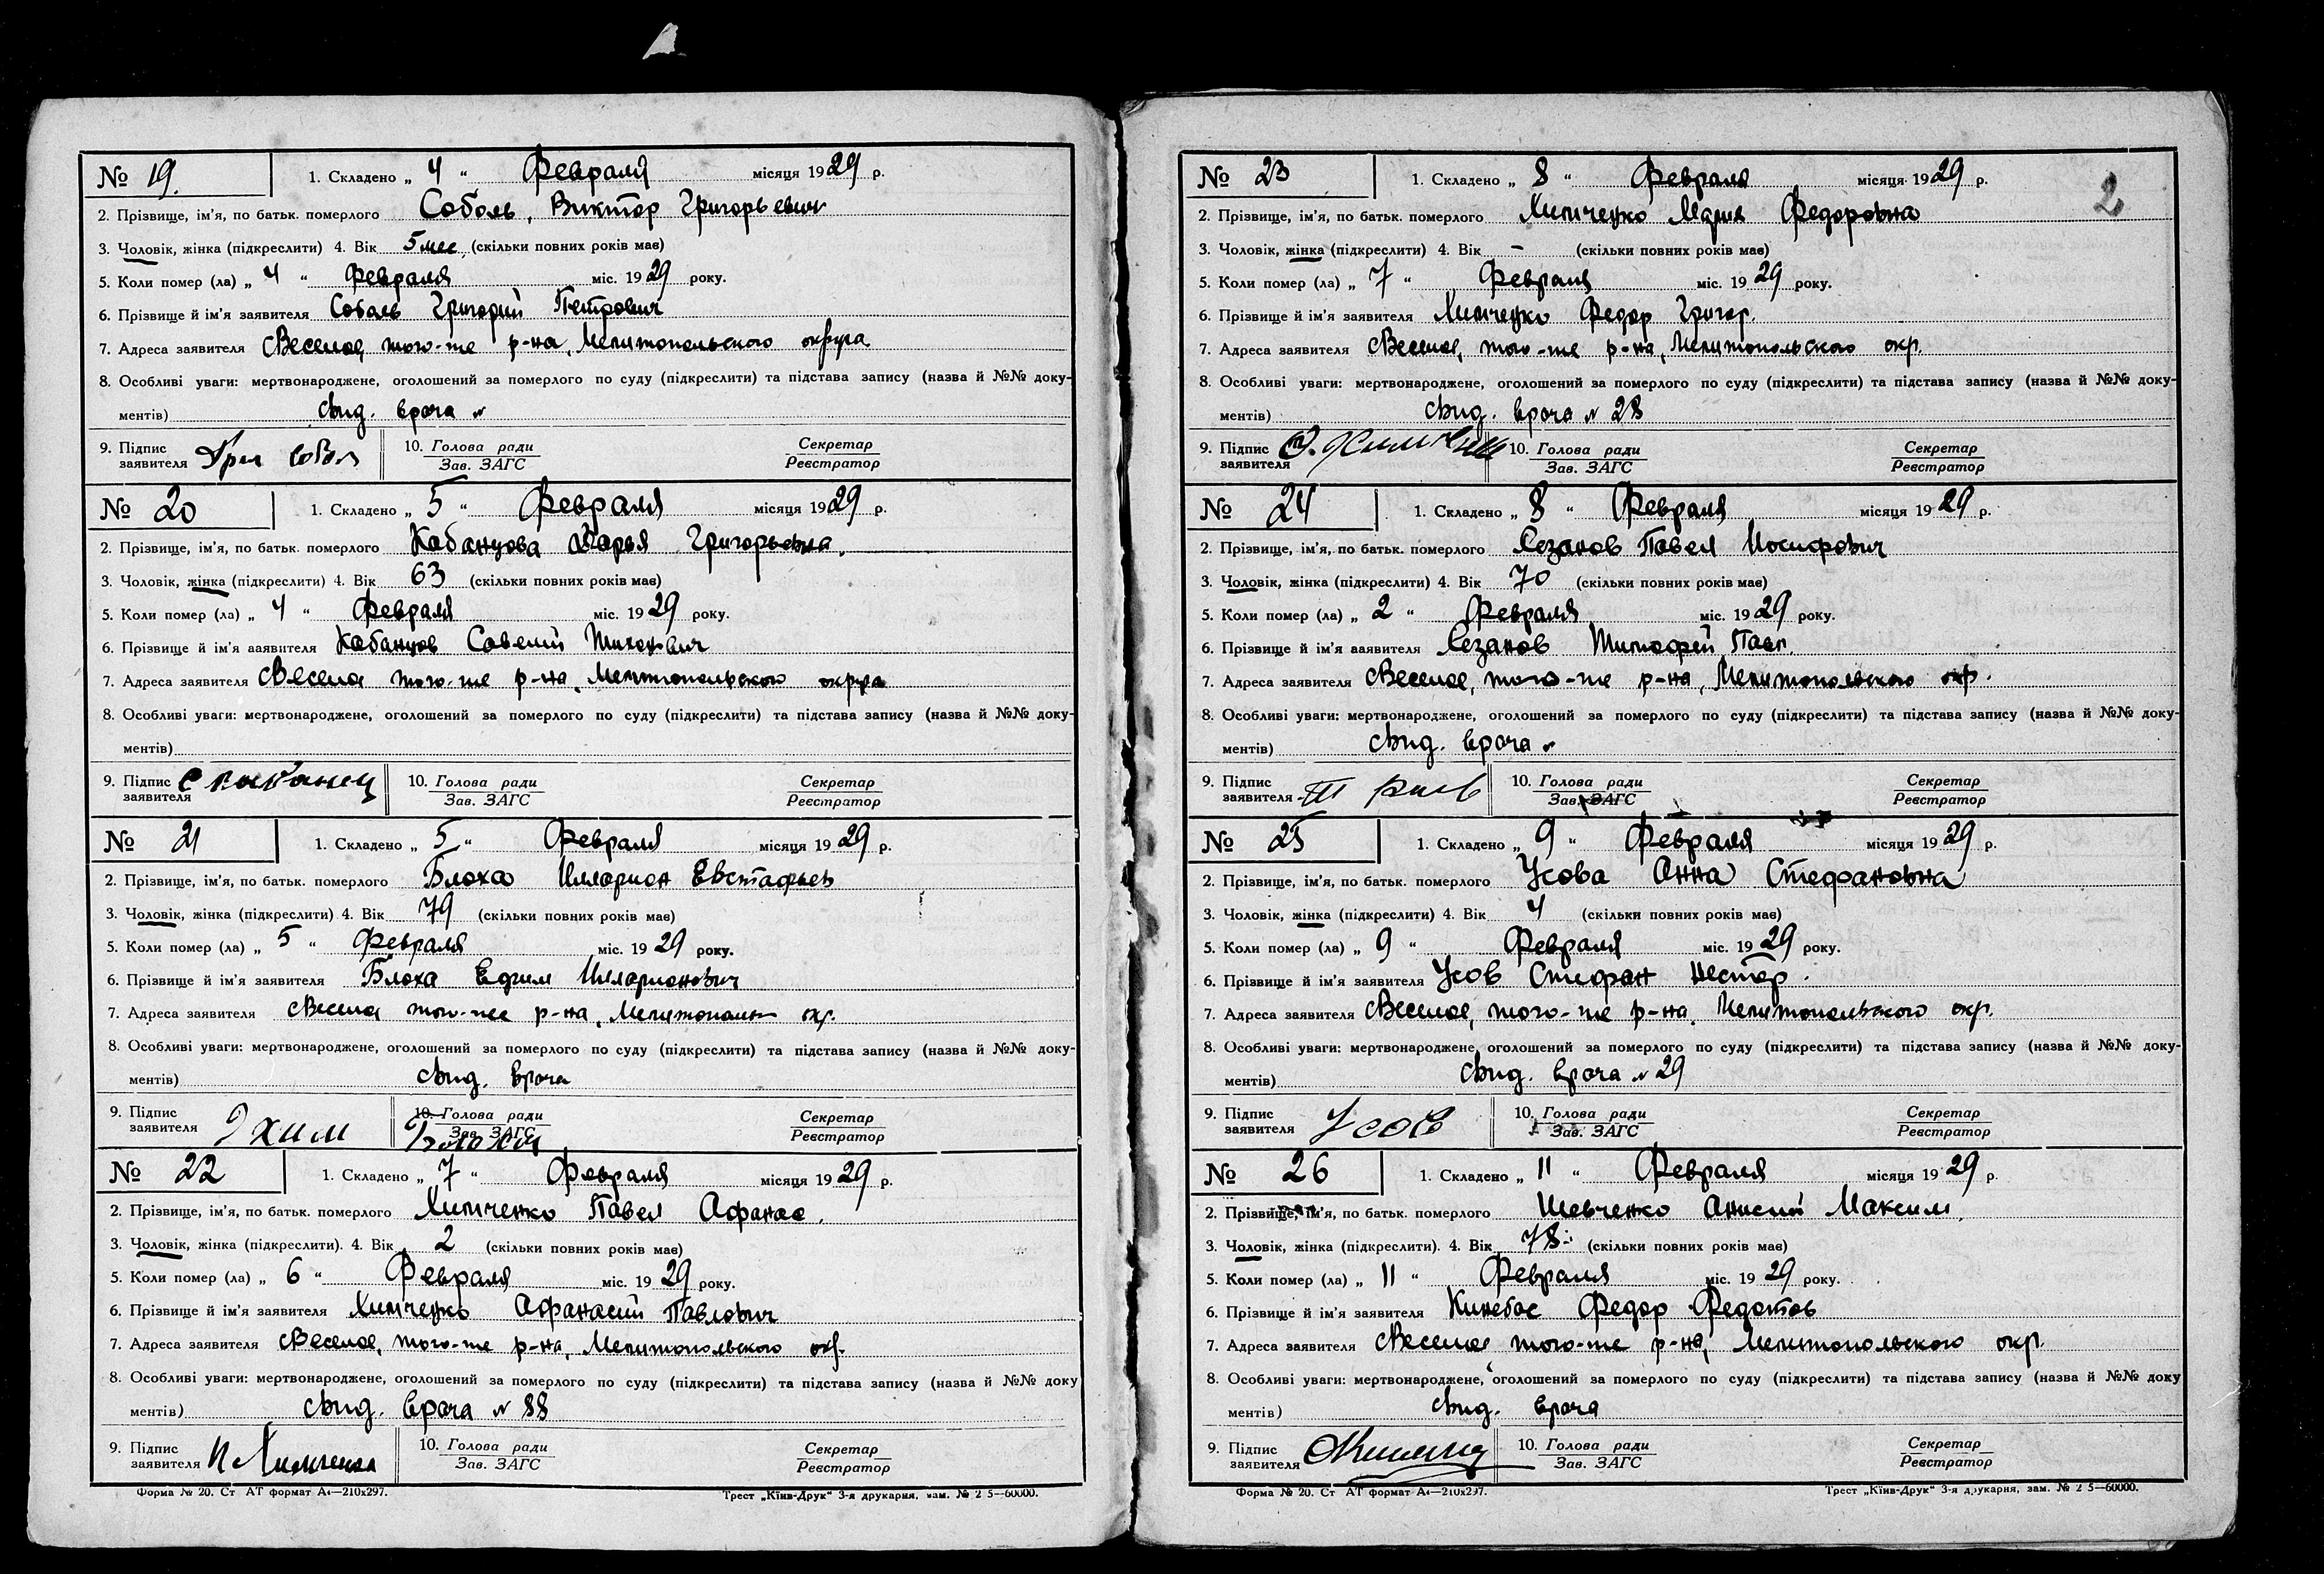 № 19. 1. Складено „ 4 “ Февраля місяця 1929 р.
2. Прізвище, ім’я, по батьк. померлого Соболь, Виктор Григорьевич
3. Чоловік, жінка (підкреслити) 4. Вік 5 мес (скільки повних років має)
5. Коли помер (ла) „ 4 “ Февраля міс. 1929 року.
6. Прізвище й ім’я заявителя Соболь Григорий Петрович
7. Адреса заявителя с Веселое, того-же р-на, Мелитопольского округа
8. Особливі уваги: мертвонароджене, оголошений за померлого по суду (підкреслити) та підстава запису (назва й №№ доку-
ментів) свид. врача №
9. Підпис заявителя Гри Собол 10. Голова ради Зав. ЗАГС Секретар Реєстратор
№ 20 1. Складено „ 5 “ Февраля місяця 1929 р.
2. Прізвище, ім’я, по батьк. померлого Кабанцова Дарья Григорьевна.
3. Чоловік, жінка (підкреслити) 4. Вік 63 (скільки повних років має)
5. Коли помер (ла) „ 4 “ Февраля міс. 1929 року.
6. Прізвище й ім’я заявителя Кабанцов Савелий Тихонович
7. Адреса заявителя с Веселое того-же р-на, Мелитопольского округа
8. Особливі уваги: мертвонароджене, оголошений за померлого по суду (підкреслити) та підстава запису (назва й №№ доку-
ментів)
9. Підпис заявителя С кабанец 10. Голова ради Зав. ЗАГС Секретар Реєстратор
№ 21 1. Складено „ 5 “ Февраля місяця 1929 р.
2. Прізвище, ім’я, по батьк. померлого Блоха Илларион Евстафьев
3. Чоловік, жінка (підкреслити) 4. Вік 79 (скільки повних років має)
5. Коли помер (ла) „ 5 “ Февраля міс. 1929 року.
6. Прізвище й ім’я заявителя Блоха Ефим Илларионович
7. Адреса заявителя с Веселое того-же р-на, Мелитопольск окр.
8. Особливі уваги: мертвонароджене, оголошений за померлого по суду (підкреслити) та підстава запису (назва й №№ доку-
ментів) свид. врача
9. Підпис заявителя Эхим 10. Голова ради Зав. ЗАГС Секретар Реєстратор
№ 22 1. Складено „ 7 “ Февраля місяця 1929 р.
2. Прізвище, ім’я, по батьк. померлого Химченко Павел Афанас.
3. Чоловік, жінка (підкреслити). 4. Вік 2 (скільки повних років має)
5. Коли помер (ла) „ 6 “ Февраля міс. 1929 року.
6. Прізвище й ім’я заявителя Химченко Афанасий Павлович
7. Адреса заявителя с Веселое, того-же р-на, Мелитопольского окр.
8. Особливі уваги: мертвонароджене, оголошений за померлого по суду (підкреслити) та підстава запису (назва й №№ доку
ментів) свид. врача № 88
9. Підпис заявителя Химченко 10. Голова ради Зав. ЗАГС Секретар Реєстратор
Форма № 20. Ст АТ формат А4—210х297. Трест „Київ-Друк“ 3-я друкарня, зам. № 2 5—60000.
2
№ 23 1. Складено „ 8 “ Февраля місяця 1929 р.
2. Прізвище, ім’я, по батьк. померлого Химченко Мария Федоровна
3. Чоловік, жінка (підкреслити) 4. Вік – (скільки повних років має)
5. Коли помер (ла) „ 7 “ Февраля міс. 1929 року.
6. Прізвище й ім’я заявителя Химченко Федор Григор.
7. Адреса заявителя с Веселое, того-же р-на, Мелитопольского окр.
8. Особливі уваги: мертвонароджене, оголошений за померлого по суду (підкреслити) та підстава запису (назва й №№ доку-
ментів) свид. врача № 28
9. Підпис заявителя 10. Голова ради Зав. ЗАГС Секретар Реєстратор
№ 24 1. Складено „ 8 “ Февраля місяця 1929 р.
2. Прізвище, ім’я, по батьк. померлого Рєзанов Павел Иосифович
3. Чоловік, жінка (підкреслити) 4. Вік 70 (скільки повних років має)
5. Коли помер (ла) „ 2 “ Февраля міс. 1929 року.
6. Прізвище й ім’я заявителя Тимофей Павл.
7. Адреса заявителя с Веселое, того-же р-на, Мелитопольского окр.
8. Особливі уваги: мертвонароджене, оголошений за померлого по суду (підкреслити) та підстава запису (назва й №№ доку-
ментів) свид. врача №
9. Підпис заявителя 10. Голова ради Зав. ЗАГС Секретар Реєстратор
№ 25 1. Складено „ 9 “ Февраля місяця 1929 р.
2. Прізвище, ім’я, по батьк. померлого Усова Анна Стефановна
3. Чоловік, жінка (підкреслити) 4. Вік 4 (скільки повних років має)
5. Коли помер (ла) „ 9 “ Февраля міс. 1929 року.
6. Прізвище й ім’я заявителя Усов Стефан Нестор.
7. Адреса заявителя с Веселое, того-же р-на, Мелитопольского окр.
8. Особливі уваги: мертвонароджене, оголошений за померлого по суду (підкреслити) та підстава запису (назва й №№ доку-
ментів) свид. врача № 29
9. Підпис заявителя Усов 10. Голова ради Зав. ЗАГС Секретар Реєстратор
№ 26 1. Складено „ 11 “ Февраля місяця 1929 р.
2. Прізвище, ім’я, по батьк. померлого Шевченко Анисий Максим.
3. Чоловік, жінка (підкреслити). 4. Вік 78 (скільки повних років має)
5. Коли помер (ла) „ 11 “ Февраля міс. 1929 року.
6. Прізвище й ім’я заявителя Кинебас Федор Федотов
7. Адреса заявителя с Веселое того-же р-на, Мелитопольского окр.
8. Особливі уваги: мертвонароджене, оголошений за померлого по суду (підкреслити) та підстава запису (назва й №№ доку
ментів) свид. врача
9. Підпис заявителя 10. Голова ради Зав. ЗАГС Секретар Реєстратор
Форма № 20. Ст АТ формат А4—210х297. Трест „Київ-Друк“ 3-я друкарня, зам. № 2 5—60000.